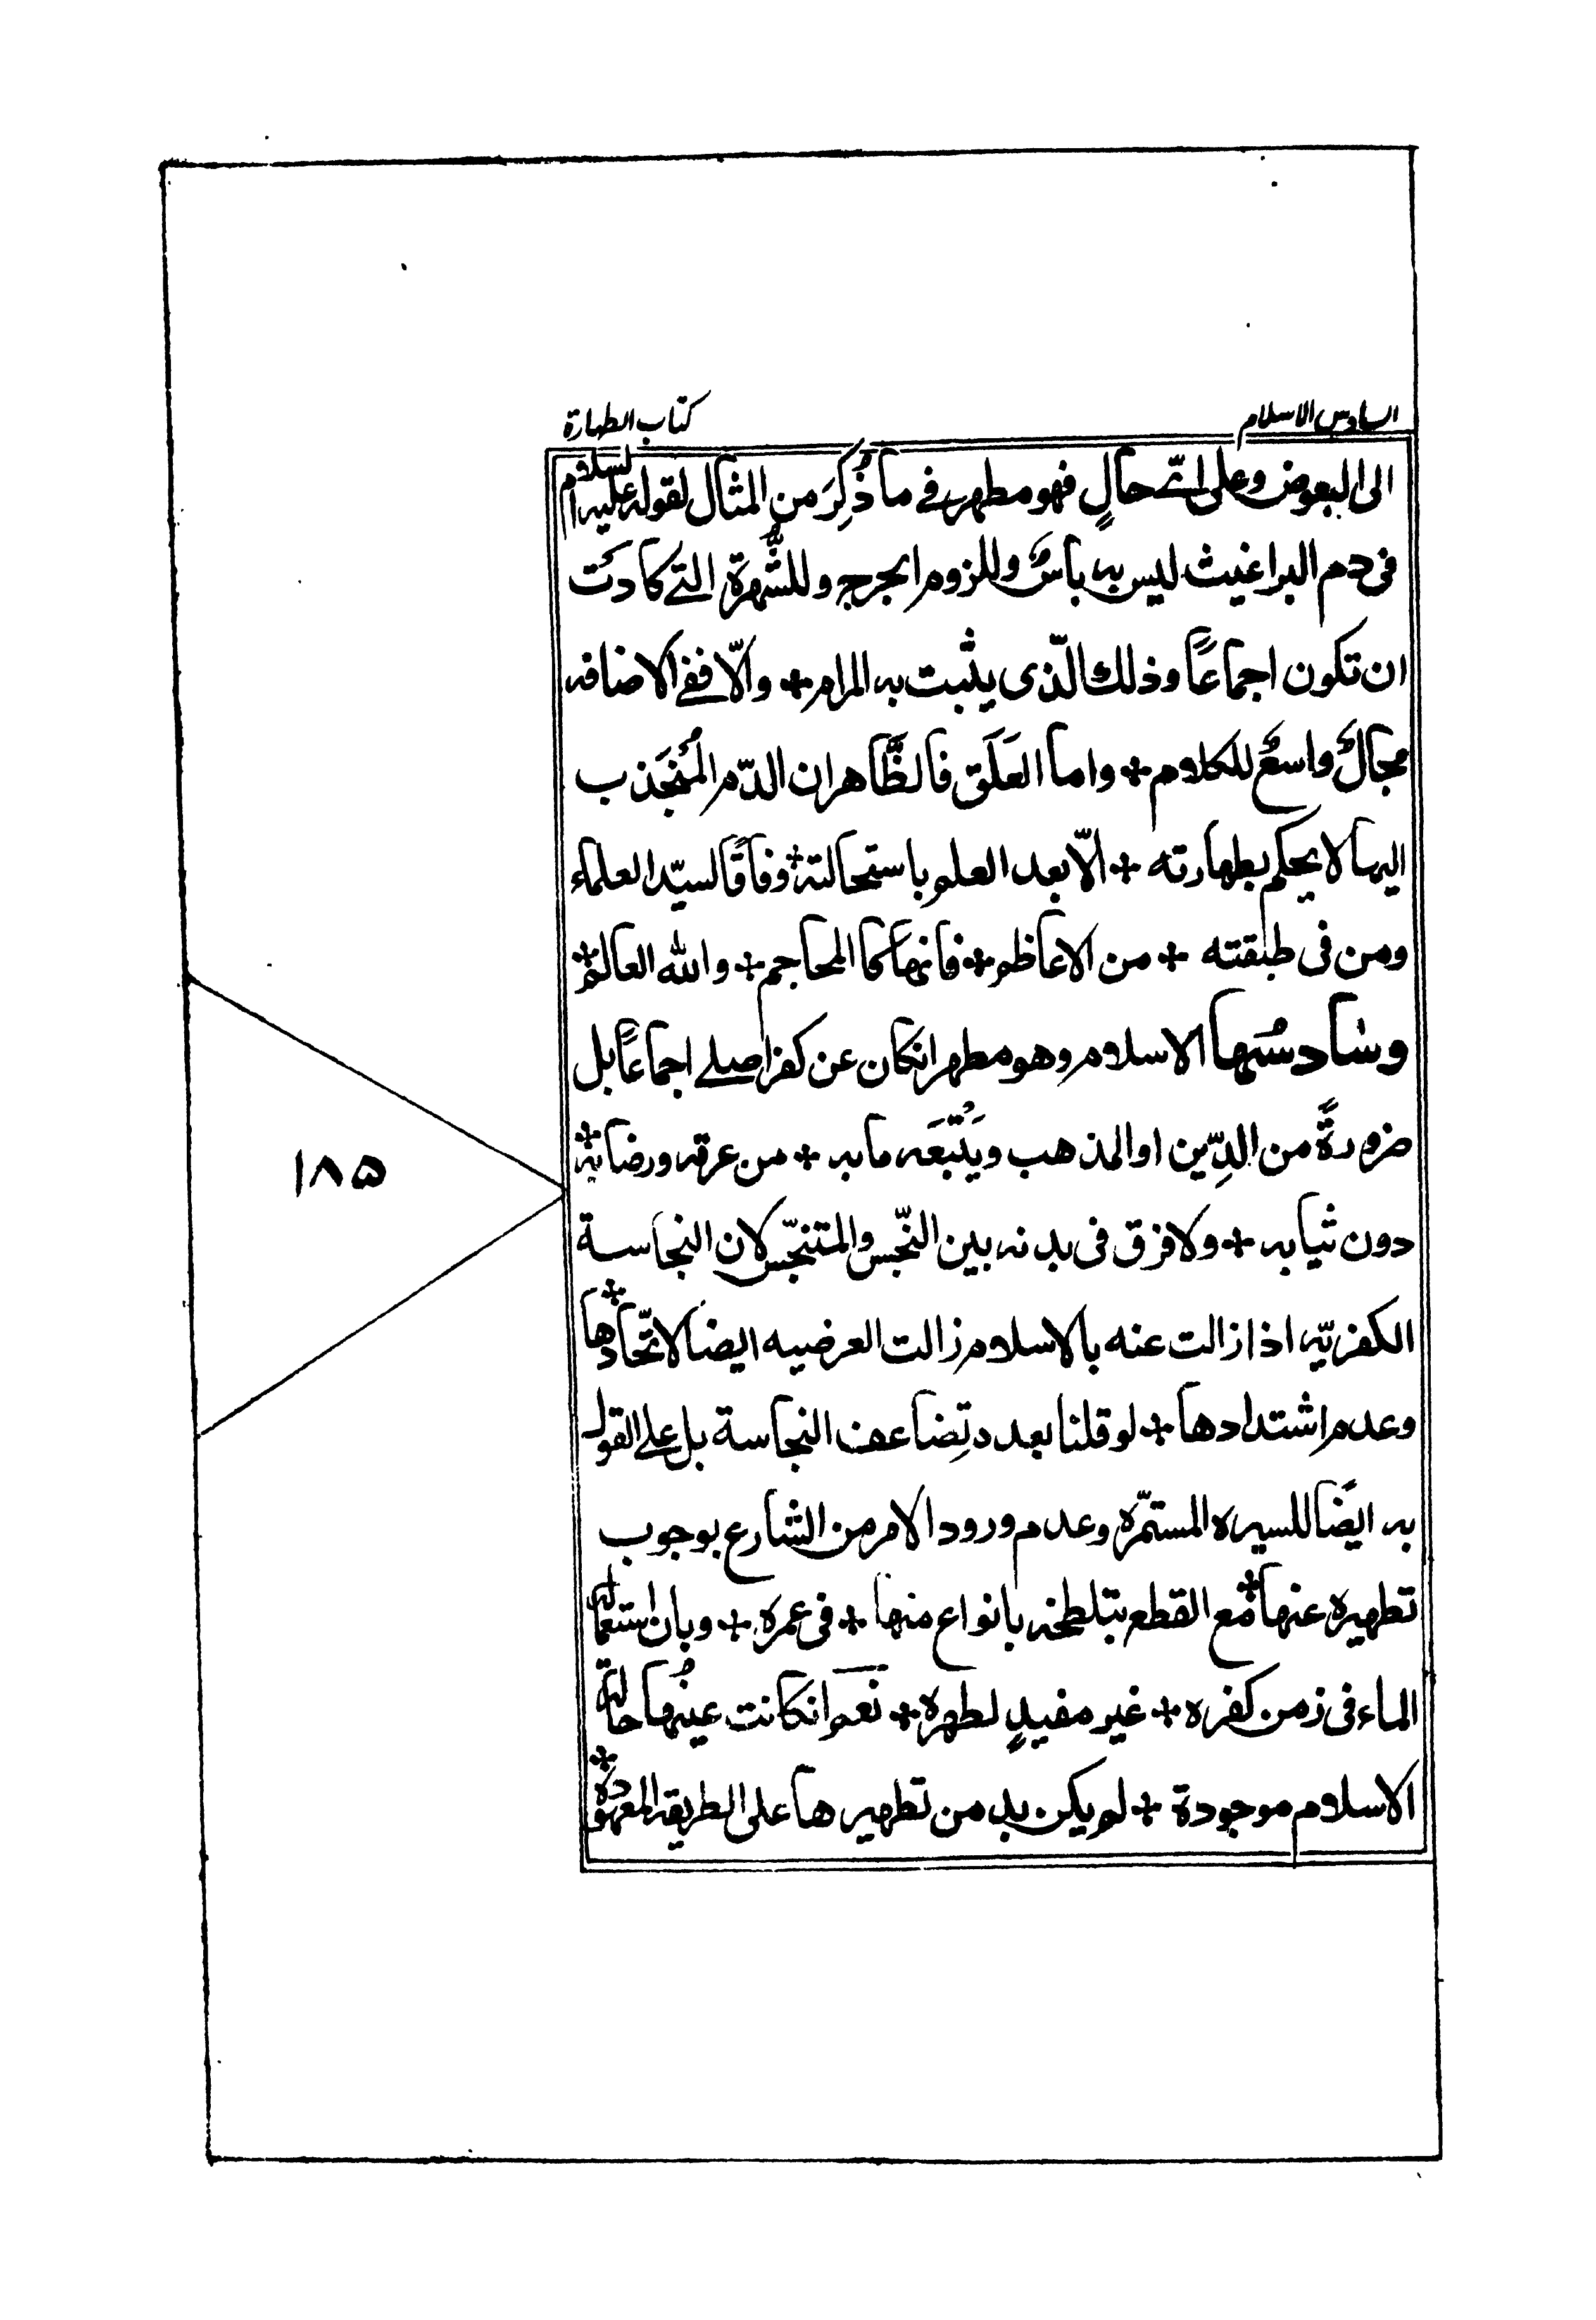 السادس الاسلام
كتاب الطهارة
الى البعوض وعلى ايّ حالٍ فهو مطهر في ما ذُكِرَ من المثال لقوله عليه السلام
فى دم البراغيث ليس به باسٌ وللزوم الحرج وللشُّهرة التي كادَت
ان تكون اجماعًا وذلك الّذى يثبت به المرام + والّا ففي الاضافه
مجالٌ واسعٌ للكلام + واما العَلَق فالظَّاهر ان الدّم المُنجَذب
اليها لا يحكم بطهارته + الّا بعد العلم باستحالته + وفاقًا لسيّد العلماء
ومن فى طبقته + من الاعاظم + فانها كالمحاجم + والله العالم +
وسادسُها الاسلام وهو مطهر انكان عن كفر اصلي اجماعًا بل
ضرورةً من الدِّين او المذهب ويَتْبَعَه ما به + من عرقه ورضابه +
دون ثيابه + ولا فرق فى بدنه بين النّجس والمتنجّس لان النجاسة
الكفريّه اذا زالت عنه بالاسلام زالت العرضيه ايضا لاتّحادها +
وعدم اشتدادها + لو قلنا بعدم تِضاعف النجاسة بل على القول
به ايضًا للسيره المستمرّه وعدم ورود الامر من الشارع بوجوب
تطهيره عنها + مع القطع بتلطخه بانواع منها + فى عمره + وبان استعماله
الماء فى زمن كفره + غير مفيدٍ لطهره + نَعَم انكانت عينُها حالة
الاسلام موجودة + لم يكن بد من تطهيرها على الطريقه المعهودة +
١٨٥